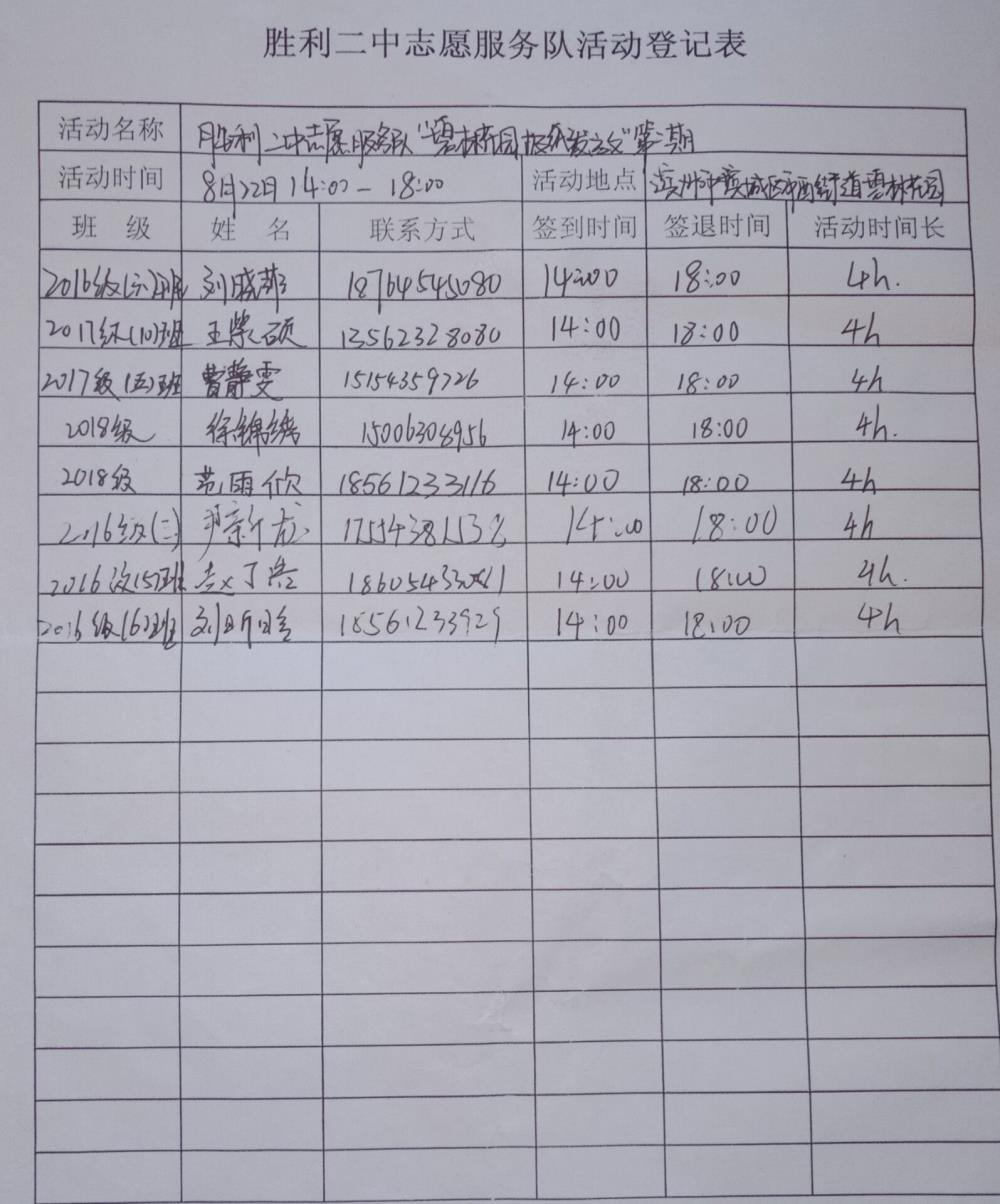 胜利二中志愿服务队活动登记表
活动名称 胜利二中志愿服务队"碧林花园报纸发放"第一期
活动时间 8月22日14:00-18:00 活动地点 滨州市滨城区市西街道雲林花园
班 级 姓 名 联系方式 签到时间 签退时间 活动时间长
2016级(六)班 刘晓菲 18764545080 14:00 18:00 4h.
2017级(10)班 王崇硕 13562328080 14:00 18:00 4h
2017级(五)班 曹静雯 15154359726 14:00 18:00 4h
2018级 徐锦绣 15006308956 14:00 18:00 4h.
2018级 苑雨欣 18561233116 14:00 18:00 4h
2016级(二) 尹新龙 14:00 18:00 4h
2016级(5)班 赵子浩 14:00 18:00 4h.
2016级(6)班 刘昕 18561233929 14:00 18:00 4h